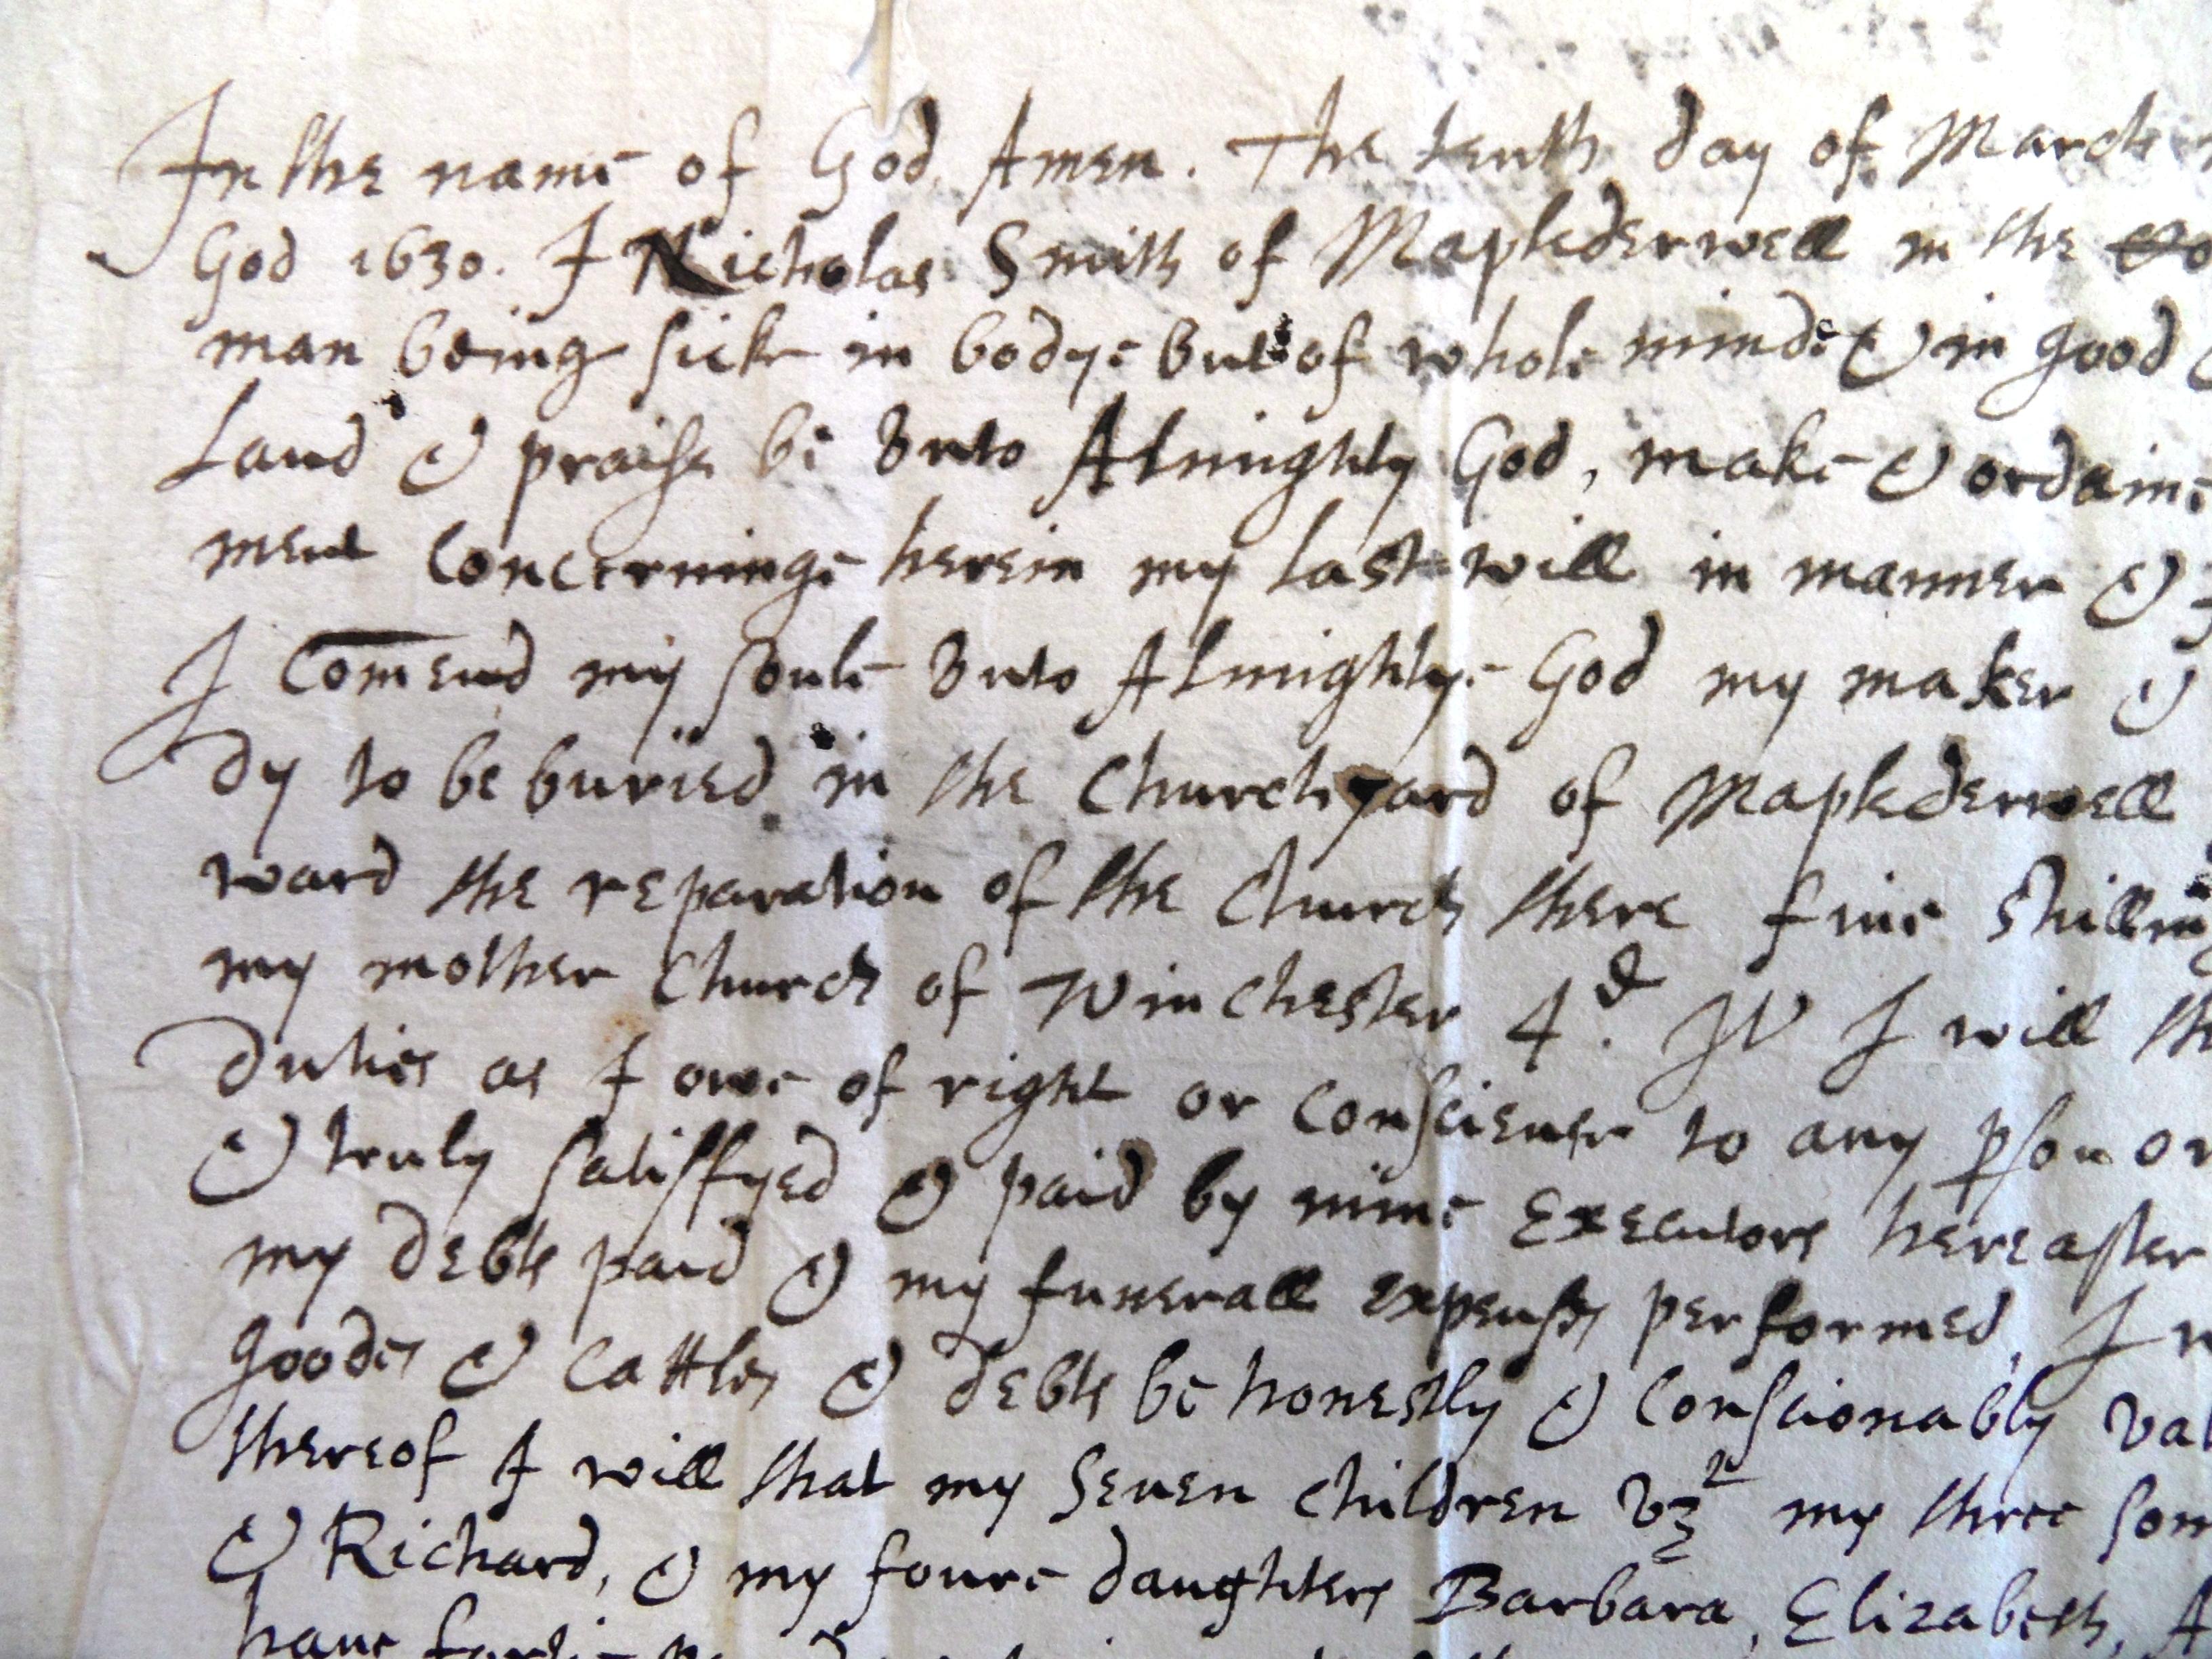 In the name of God Amen. The tenth day of March
God 1630. I Nicholas Smith of Maplederwell in the
man being sicke in bodye But of whole minde & in good
Laud & praise be vnto Almighty God, make & ordaine
ment concerninge herein my last will in manner &
I Comend my soule vnto Almightye God my maker &
dy to be buried in the Churchyard of Maplederwell
ward the reparation of the Church there fiue shilling
my mother Church of Winchester 4d. It I will th
duties as I owe of right or conscience to any pson or
& truly satisfyed & paid by mine Executors hereafter
my debts paid & my funerall expenses performed, I
goodes & cattles & debts be honestly & conscionably val
thereof I will that my seuen children vz my three son
& Richard, & my foure daughters Barbara, Elizabeth, A
haue fortie